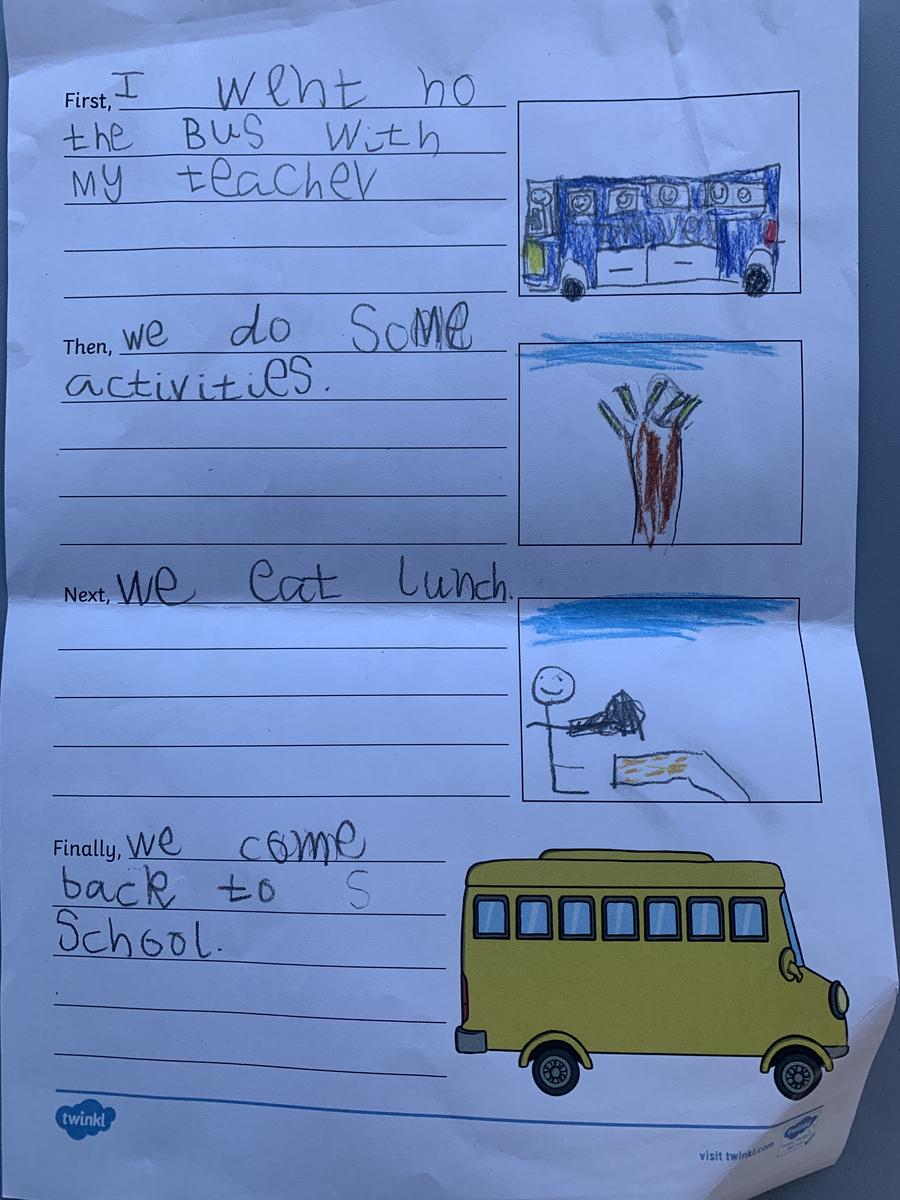 First, I went no
the BUS with
MY teacher
Then, we do Some
activities.
Next, we eat lunch.
Finally, we come
back to S
School.
twinkl
visit twinkl.com
twinkl